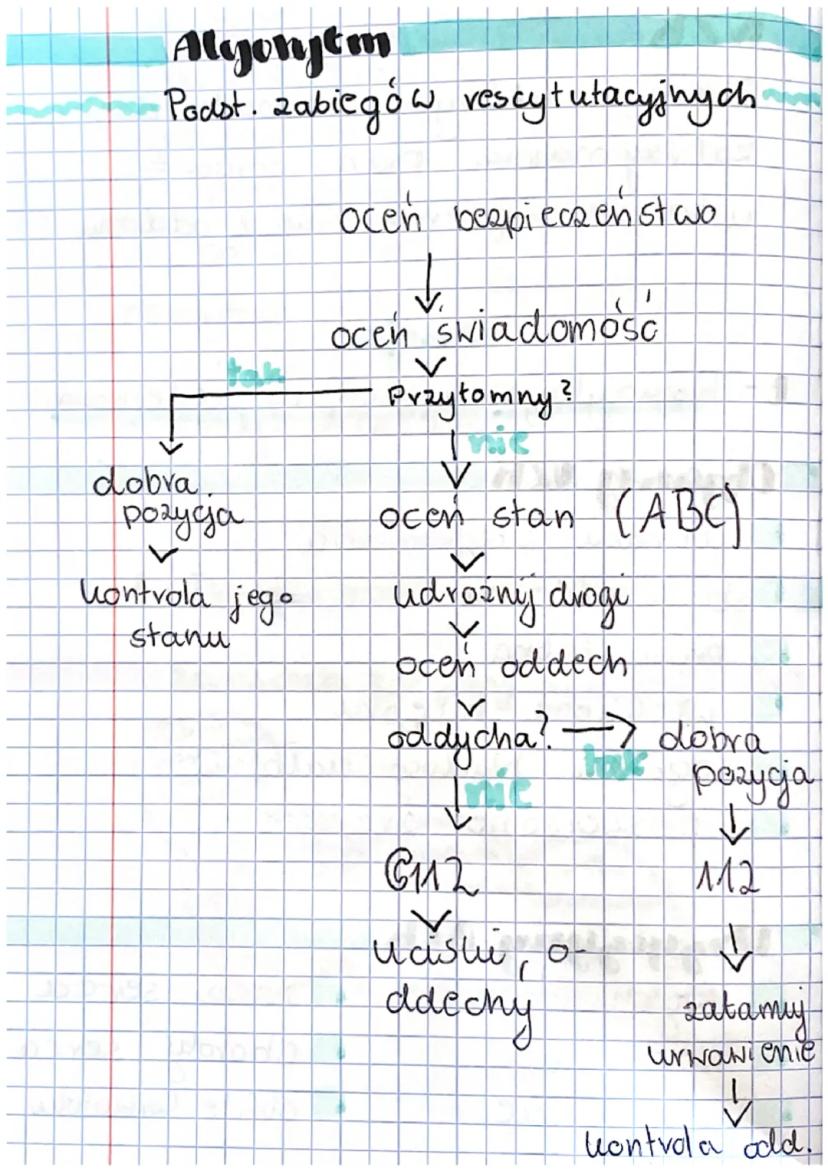 Algorytm
Podst. zabiegów rescytutacyjnych
oceń bezpieczeństwo
oceń świadomość
tak
Przytomny?
nie
dobra
pozycja
oceń stan (ABC)
kontrola jego
stanu
udrożnij drogi
oceń oddech
oddycha?
tak
dobra
pozycja
nie
112
112
uciski, o-
ddechy
zatamuj
urwawienie
kontrola odd.